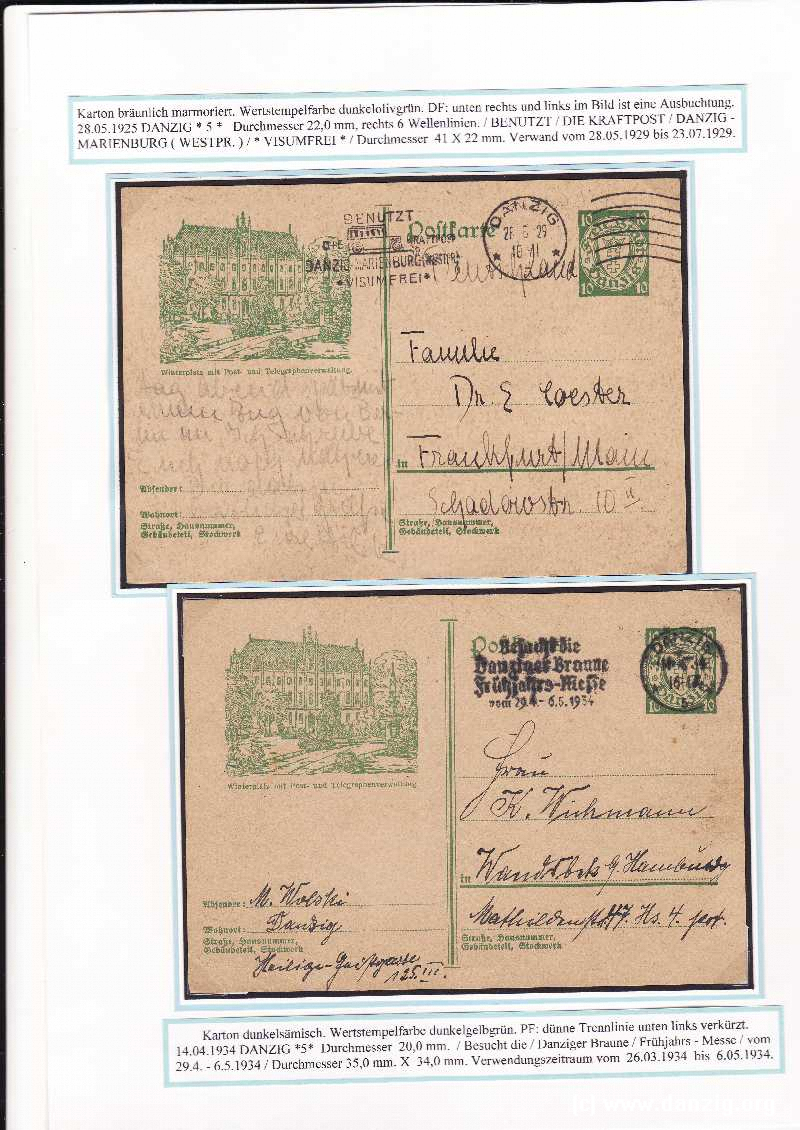 Karton bräunlich marmoriert. Wertstempelfarbe dunkelolivgrün. DF: unten rechts und links im Bild ist eine Ausbuchtung.
28.05.1925 DANZIG * 5 * Durchmesser 22,0 mm, rechts 6 Wellenlinien. / BENUTZT / DIE KRAFTPOST / DANZIG -
MARIENBURG ( WESTPR. ) / * VISUMFREI * / Durchmesser 41 X 22 mm. Verwand vom 28.05.1929 bis 23.07.1929.
BENUTZT
DIE KRAFTPOST
DANZIG-MARIENBURG (WESTPR.)
*VISUMFREI*
Postkarte
DANZIG
28 5 29
10
10 10
Deutschland
Winterplatz mit Post- und Telegraphenverwaltung.
Familie
Dr. E Coester
in Frankfurt/Main
Schadowstr. 10 II.
Absender:
Wohnort:
Straße, Hausnummer,
Gebäudeteil, Stockwerk
Straße, Hausnummer,
Gebäudeteil, Stockwerk
Besucht die
Danziger Braune
Frühjahrs-Messe
vom 29.4.- 6.5.1934
DANZIG
10 10
Winterplatz mit Post- und Telegraphenverwaltung
Frau
K. Wichmann
in Wandsbek b. Hamburg
Absender: M. Wolski
Wohnort: Danzig
Straße, Hausnummer,
Gebäudeteil, Stockwerk
Heilige-Geistgasse
125 III.
Straße, Hausnummer,
Gebäudeteil, Stockwerk
Karton dunkelsämisch. Wertstempelfarbe dunkelgelbgrün. PF: dünne Trennlinie unten links verkürzt.
14.04.1934 DANZIG *5* Durchmesser 20,0 mm. / Besucht die / Danziger Braune / Frühjahrs - Messe / vom
29.4. - 6.5.1934 / Durchmesser 35,0 mm. X 34,0 mm. Verwendungszeitraum vom 26.03.1934 bis 6.05.1934.
(c) www.danzig.org